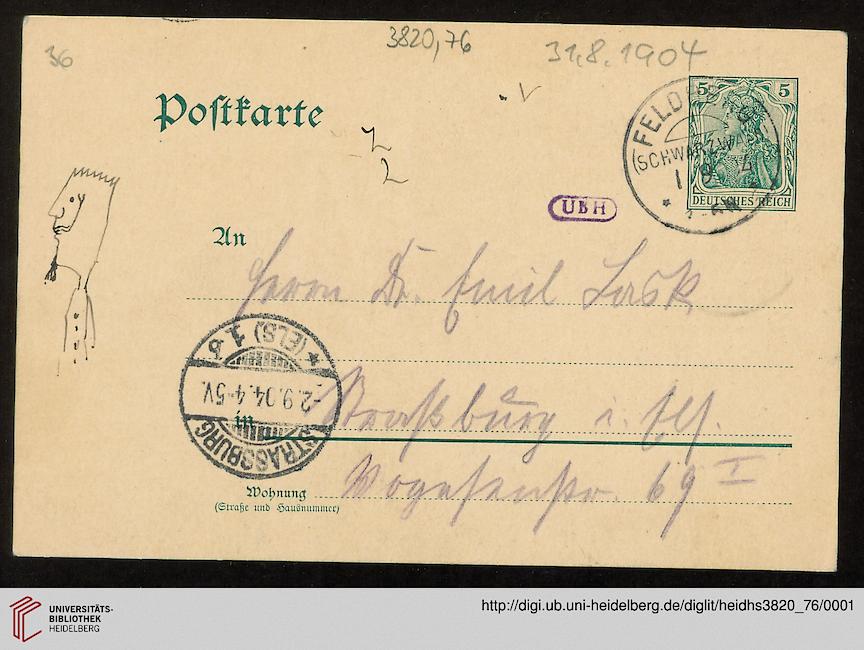 36
3820,76
31.8.1904
Postkarte
5 5
DEUTSCHES REICH
(SCHWARZWALD)
UBH
An
Herrn Dr. Emil Lask
STRASSBURG
(ELS) 1.
-2.9.04.4-5V.
in Straßburg i. Els.
Wohnung
(Straße und Hausnummer)
Vogesenstr. 69 I
UNIVERSITÄTS-
BIBLIOTHEK
HEIDELBERG
http://digi.ub.uni-heidelberg.de/diglit/heidhs3820_76/0001